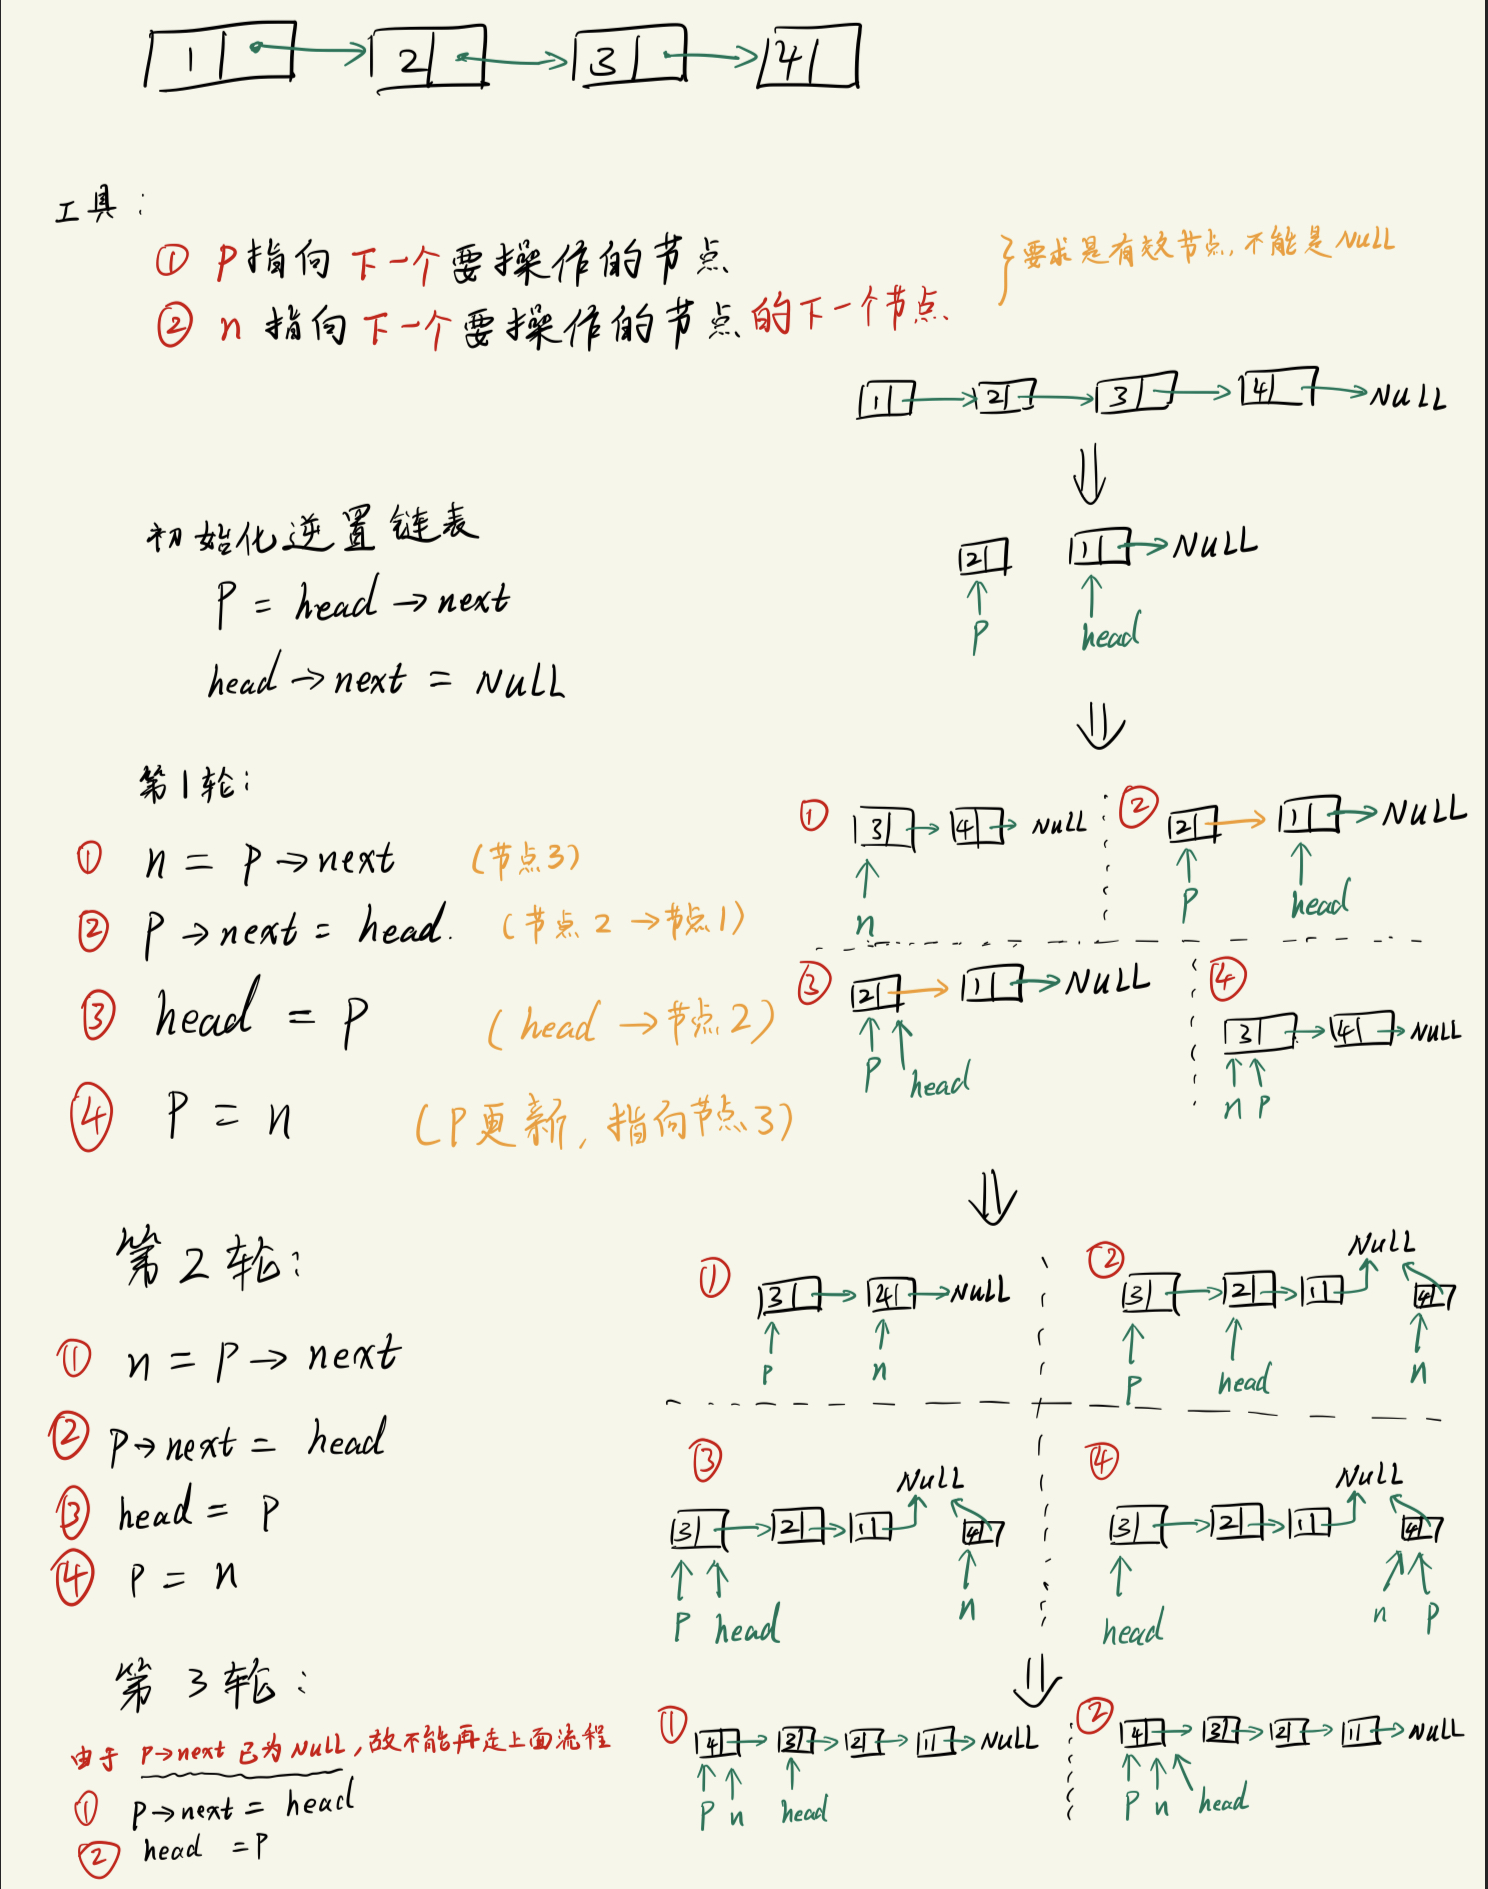 1 2 3 4
工具：
① P指向下一个要操作的节点
② n 指向下一个要操作的节点的下一个节点
}要求是有效节点，不能是NULL
1 2 3 4 NULL
初始化逆置链表
P = head → next
head → next = NULL
2 1 NULL
P head
第1轮：
① n = P → next （节点3）
② P → next = head. （节点2 → 节点1）
③ head = P （head → 节点2）
④ P = n （P更新，指向节点3）
① 3 4 NULL
n
② 2 1 NULL
P head
③ 2 1 NULL
P head
④ 3 4 NULL
n P
第2轮：
① n = P → next
② P → next = head
③ head = P
④ P = n
① 3 4 NULL
P n
② 3 2 1 NULL 4
P head n
③ 3 2 1 NULL 4
P head n
④ 3 2 1 NULL 4
head n P
第3轮：
由于 P→next 已为NULL，故不能再走上面流程
① P → next = head
② head = P
① 4 3 2 1 NULL
P n head
② 4 3 2 1 NULL
P n head